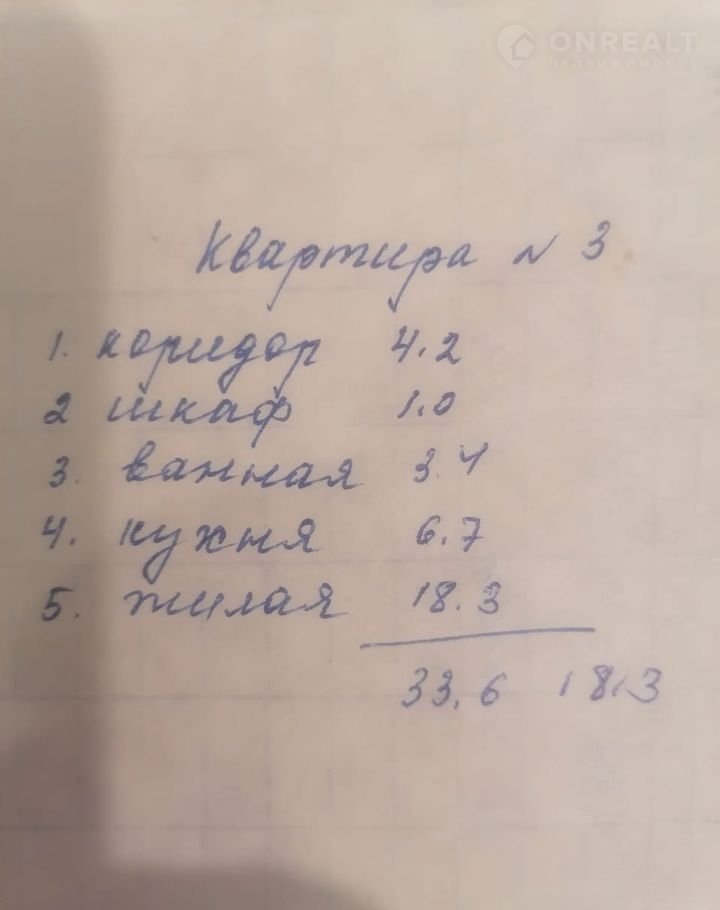 ONREALT
НЕДВИЖИМОСТЬ
Квартира N 3
1. коридор 4.2
2 шкаф 1.0
3. ванная 3.4
4. кухня 6.7
5. жилая 18.3
33,6 18,3